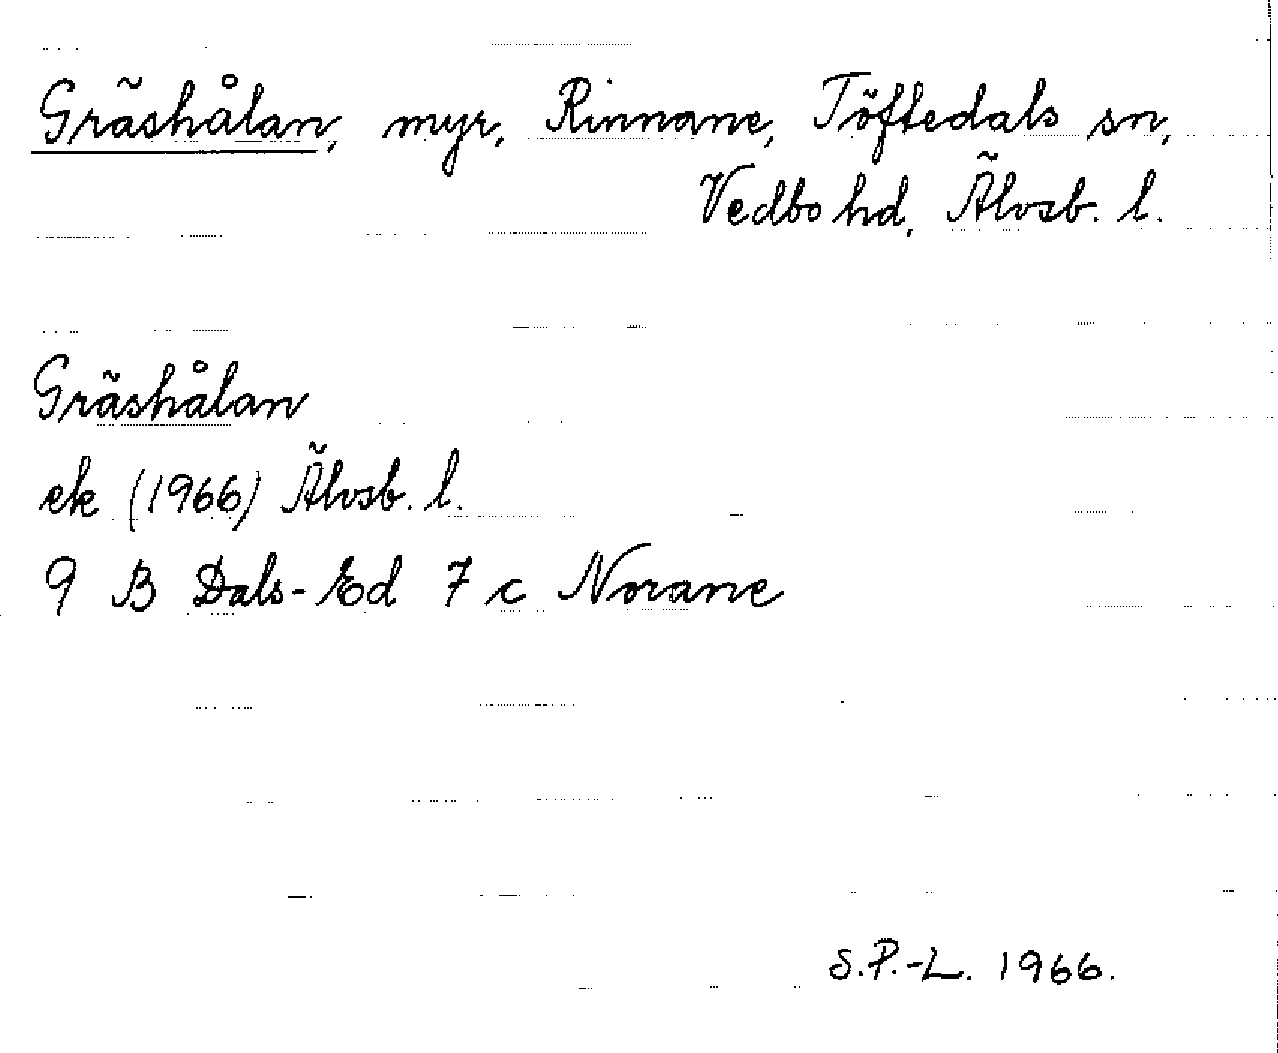 Gräshålan, myr, Rinnane, Töftedals sn,
Vedbo hd, Älvsb. l.
Gräshålan
ek (1966) Älvsb. l.
9 B Dals-Ed 7 c Norane
S.P.-L. 1966.